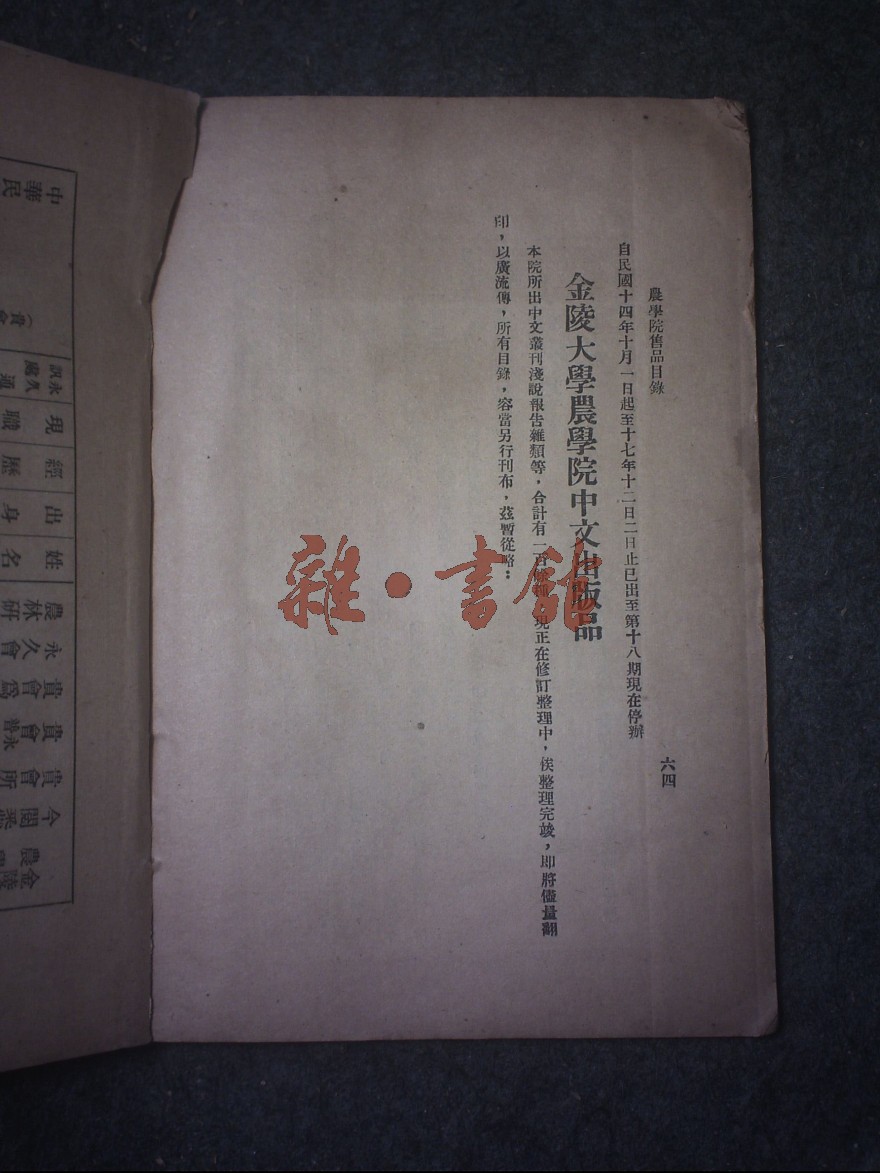 農學院舊品目錄
六四
自民國十四年十月一日起至十七年十二日二日止已出至第十八期現在停辦
金陵大學農學院中文出版品
本院所出中文叢刊淺說報告雜類等，合計有一百餘種，現正在修訂整理中，俟整理完竣，即將儘量翻
印，以廣流傳，所有目錄，容當另行刊布，茲暫從略：
雜·書館
中華民
貴會
永久通
訊處
現職
經歷
出身
姓名
農林研
永久會
貴會為
貴會
貴會所
今閱
農
金陵